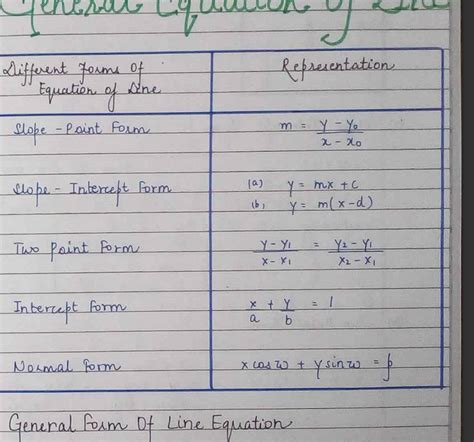 General Equation of Line
Different Forms Of Representation
Equation of Line
Slope - Point Form m = y - y₀ / x - x₀
Slope - Intercept Form (a) y = mx + c
(b) y = m(x-d)
Two Point Form y - y₁ / x - x₁ = y₂ - y₁ / x₂ - x₁
Intercept Form x/a + y/b = 1
Normal Form x cos ω + y sin ω = p
General Form Of Line Equation